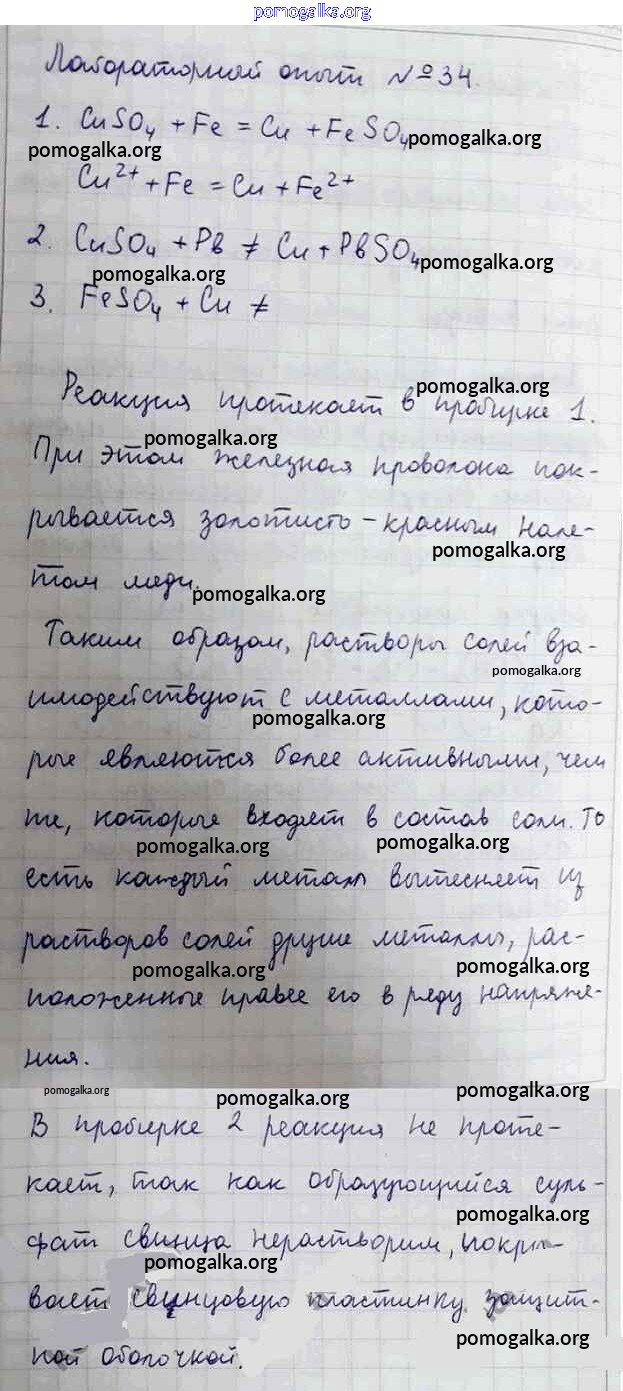 pomogalka.org
Лабораторный опыт № 34.
1. CuSO₄ + Fe = Cu + FeSO₄ pomogalka.org
pomogalka.org
Cu²⁺ + Fe = Cu + Fe²⁺
2. CuSO₄ + Pb ≠ Cu + PbSO₄ pomogalka.org
pomogalka.org
3. FeSO₄ + Cu ≠
pomogalka.org
Реакция протекает в пробирке 1.
pomogalka.org
При этом железная проволока пок-
рывается золотисто-красным нале-
pomogalka.org
том меди.
pomogalka.org
Таким образом, растворы солей вза-
pomogalka.org
имодействуют с металлами, кото-
pomogalka.org
рые являются более активными, чем
те, которые входят в состав соли. То
pomogalka.org pomogalka.org
есть каждый металл вытесняет из
растворов солей другие металлы, рас-
pomogalka.org pomogalka.org
положенные правее его в ряду напряже-
ния.
pomogalka.org pomogalka.org pomogalka.org
В пробирке 2 реакция не проте-
кает, так как образующийся суль-
pomogalka.org
фат свинца нерастворим, покры-
pomogalka.org
вает свинцовую пластинку защит-
pomogalka.org
ной оболочкой.